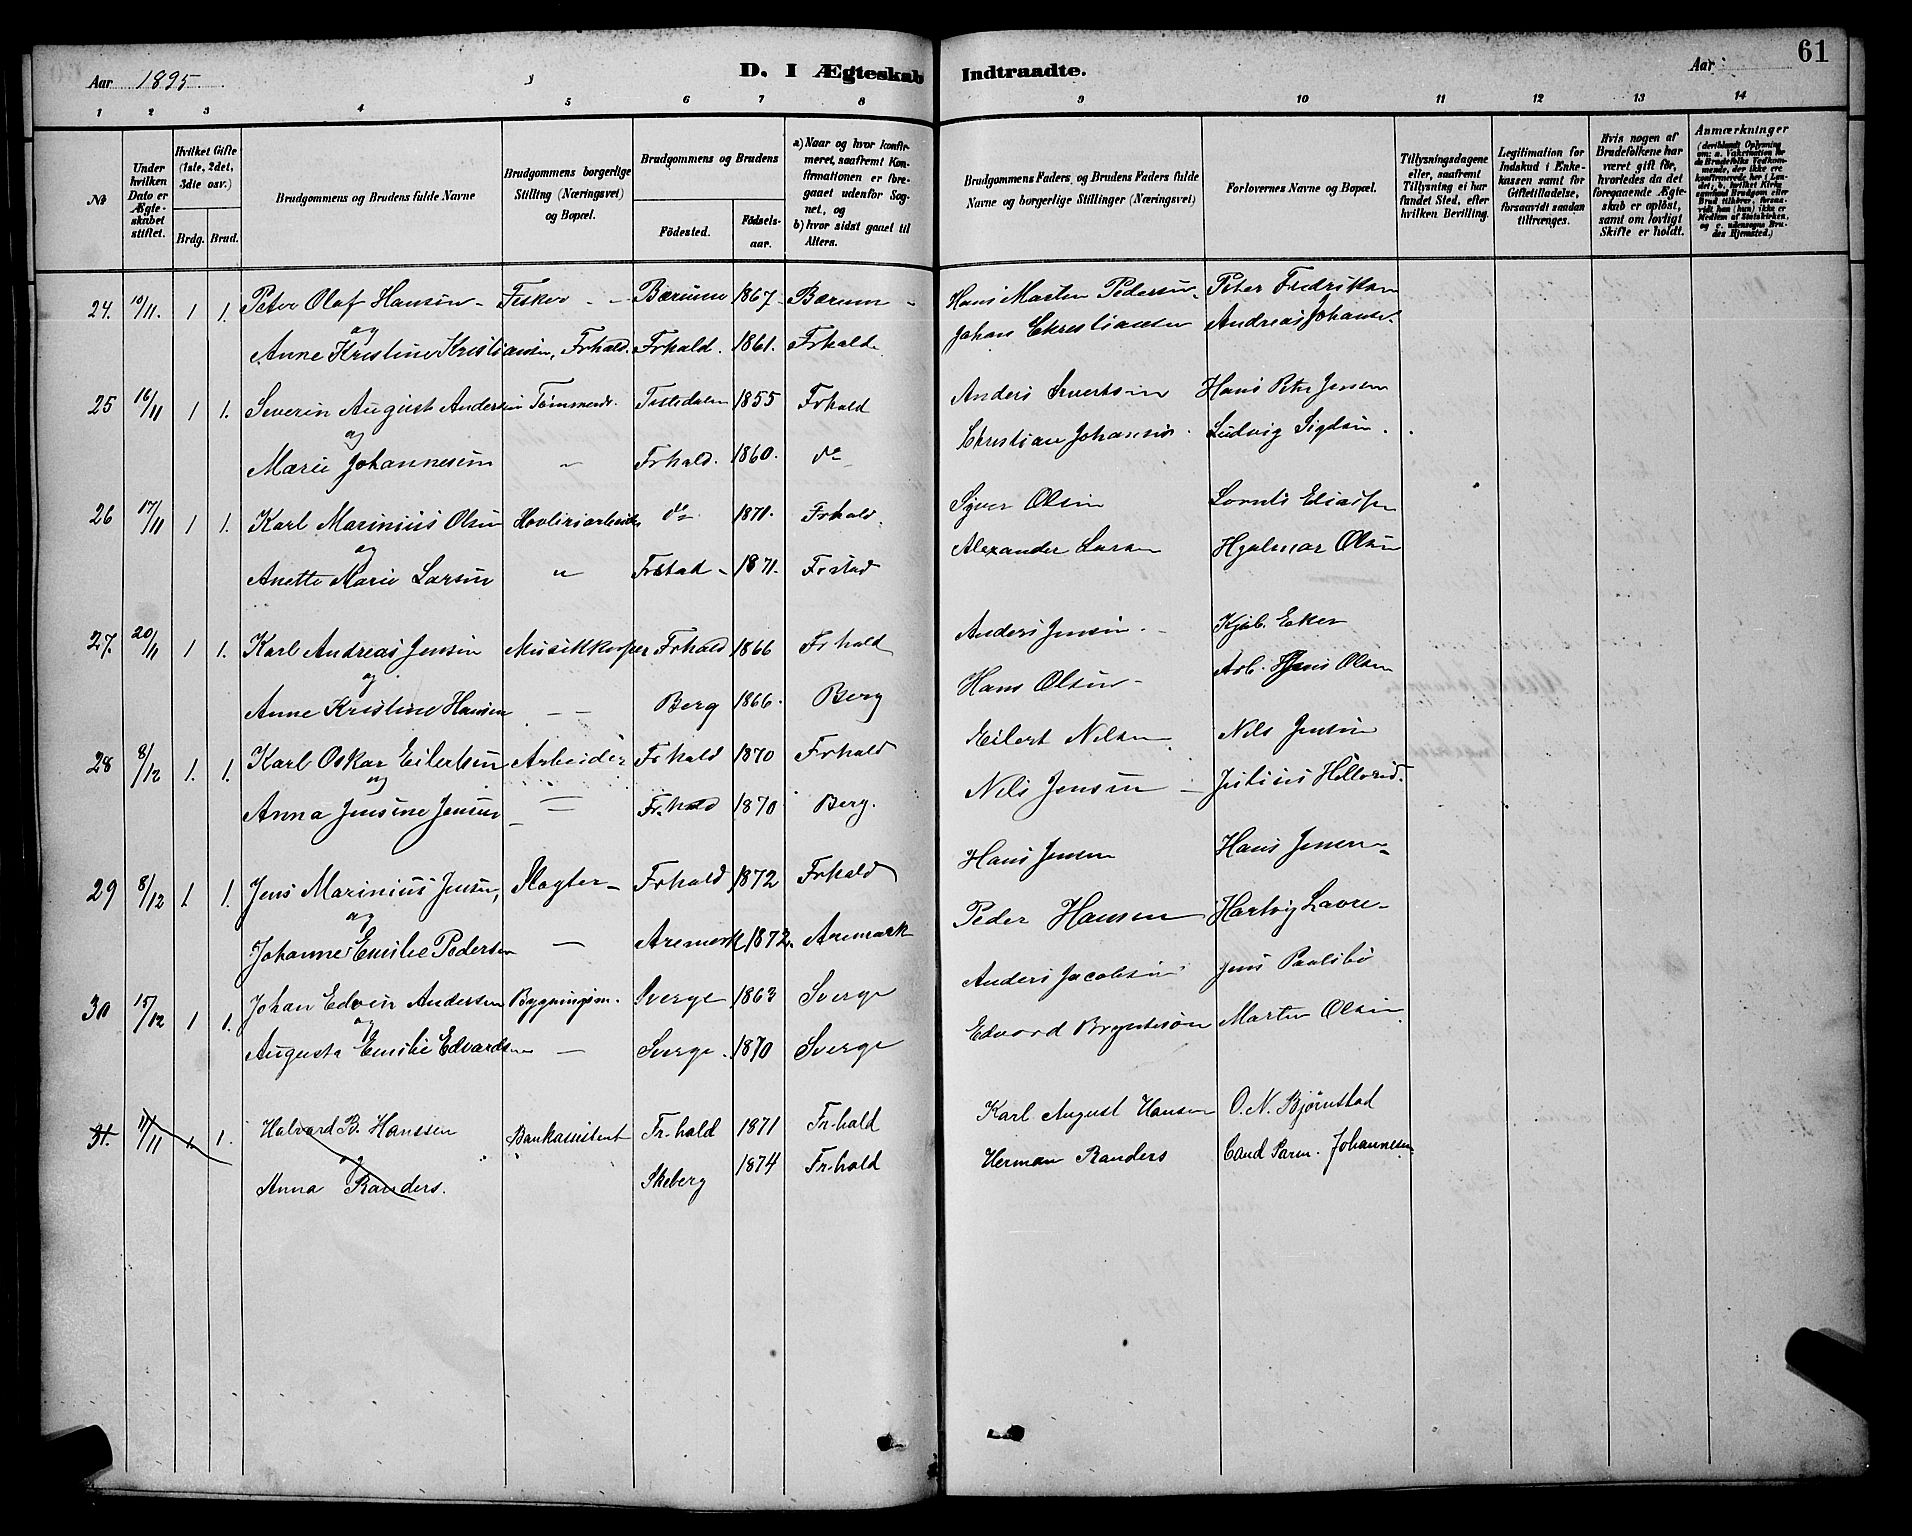 61
Aar 1895
D. I Ægteskab Indtraadte.
Aar
1 2 3 4 5 6 7 8 9 10 11 12 13 14
No
Under hvilken Dato er Ægteskabet stiftet.
Hvilket Gifte (1ste, 2det, 3die osv.)
Brdg. Brud.
Brudgommens og Brudens fulde Navne
Brudgommens borgerlige Stilling (Næringsvei) og Bopæl.
Brudgommens og Brudens
Fødested.
Fødsels-aar.
a) Naar og hvor konfirmeret, saafremt Konfirmationen er foregaaet udenfor Sognet, og
b) hvor sidst gaaet til Alters.
Brudgommens Faders og Brudens Faders fulde Navne og borgerlige Stillinger (Næringsvei)
Forlovernes Navne og Bopæl.
Tillysningsdagene eller, saafremt Tillysning ei har fundet Sted, efter hvilken Bevilling.
Legitimation for Indskud i Enkekassen samt for Giftetilladelse, forsaavidt saadan tiltrænges.
Hvis nogen af Brudefolkene har været gift før, hvorledes da det foregaaende Ægteskab er opløst, samt om lovligt Skifte er holdt.
Anmærkninger
24. 10/11. 1 1. Peter Olaf Hansen Fisker Bærum 1867 Bærum Hans Martin Pedersen Peter Fredriksen
og
Anne Kristine Kristiansen, Frhald. Frhald. 1861. Frhald Johan Christiansen Andreas Johans.
25 16/11 1 1. Severin August Andersen Tømmerm. Tistedalen 1855 Frhald Anders Syvertsen Hans Ptr Jensen
og
Marie Johannesen " Frhald. 1860. do Christian Johansen. Ludvig Sigdsen.
26 17/11 1 1. Karl Marinius Olsen Høvleriarbeider do 1871. Frhald. Syver Olsen Lornts Eliassen
og
Anette Marie Larsen " Frstad 1871. Frstad Alexander Larsen Hjalmar Olsen
27. 20/11 1 1. Karl Andreas Jensen Musikkorper Frhald 1866 Frhald Anders Jensen. Kjøb. Eker
og
Anne Kristine Hansen Berg 1866. Berg Hans Olsen Arb. Hans Olsen
28 8/12 1. 1. Karl Oskar Eilertsen Arbeider Frhald 1870 Frhald Eilert Nilsen Nils Jensen
og
Anna Jensine Jensen Fr.hald 1870 Berg. Nils Jensen Julius Hillerød.
29 8/12 1 1. Jens Marinius Jensen, Slagter Frhald 1872 Frhald Hans Jensen Hans Jensen
og
Johanne Emilie Pedersen Aremark 1872. Aremark Peder Hansen Hartvig Lavre
30 15/12 1 1. Johan Edvin Andersen Bygningsm. Sverge 1863 Sverge Anders Jacobsen Jens Paulsbø
og
Augusta Emilie Edvardsen Sverge. 1870 Sverge Edvard Bryntesøn Martin Olsen
31. 11/11 1. 1. Halvard B. Hanssen Bankassistent Fr.hald 1871 Fr.hald Karl August Hansen O. N. Bjørnstad
og
Anna Randers. Skeberg 1874 Fr.hald Herman Randers Cand Parm. Johannesen